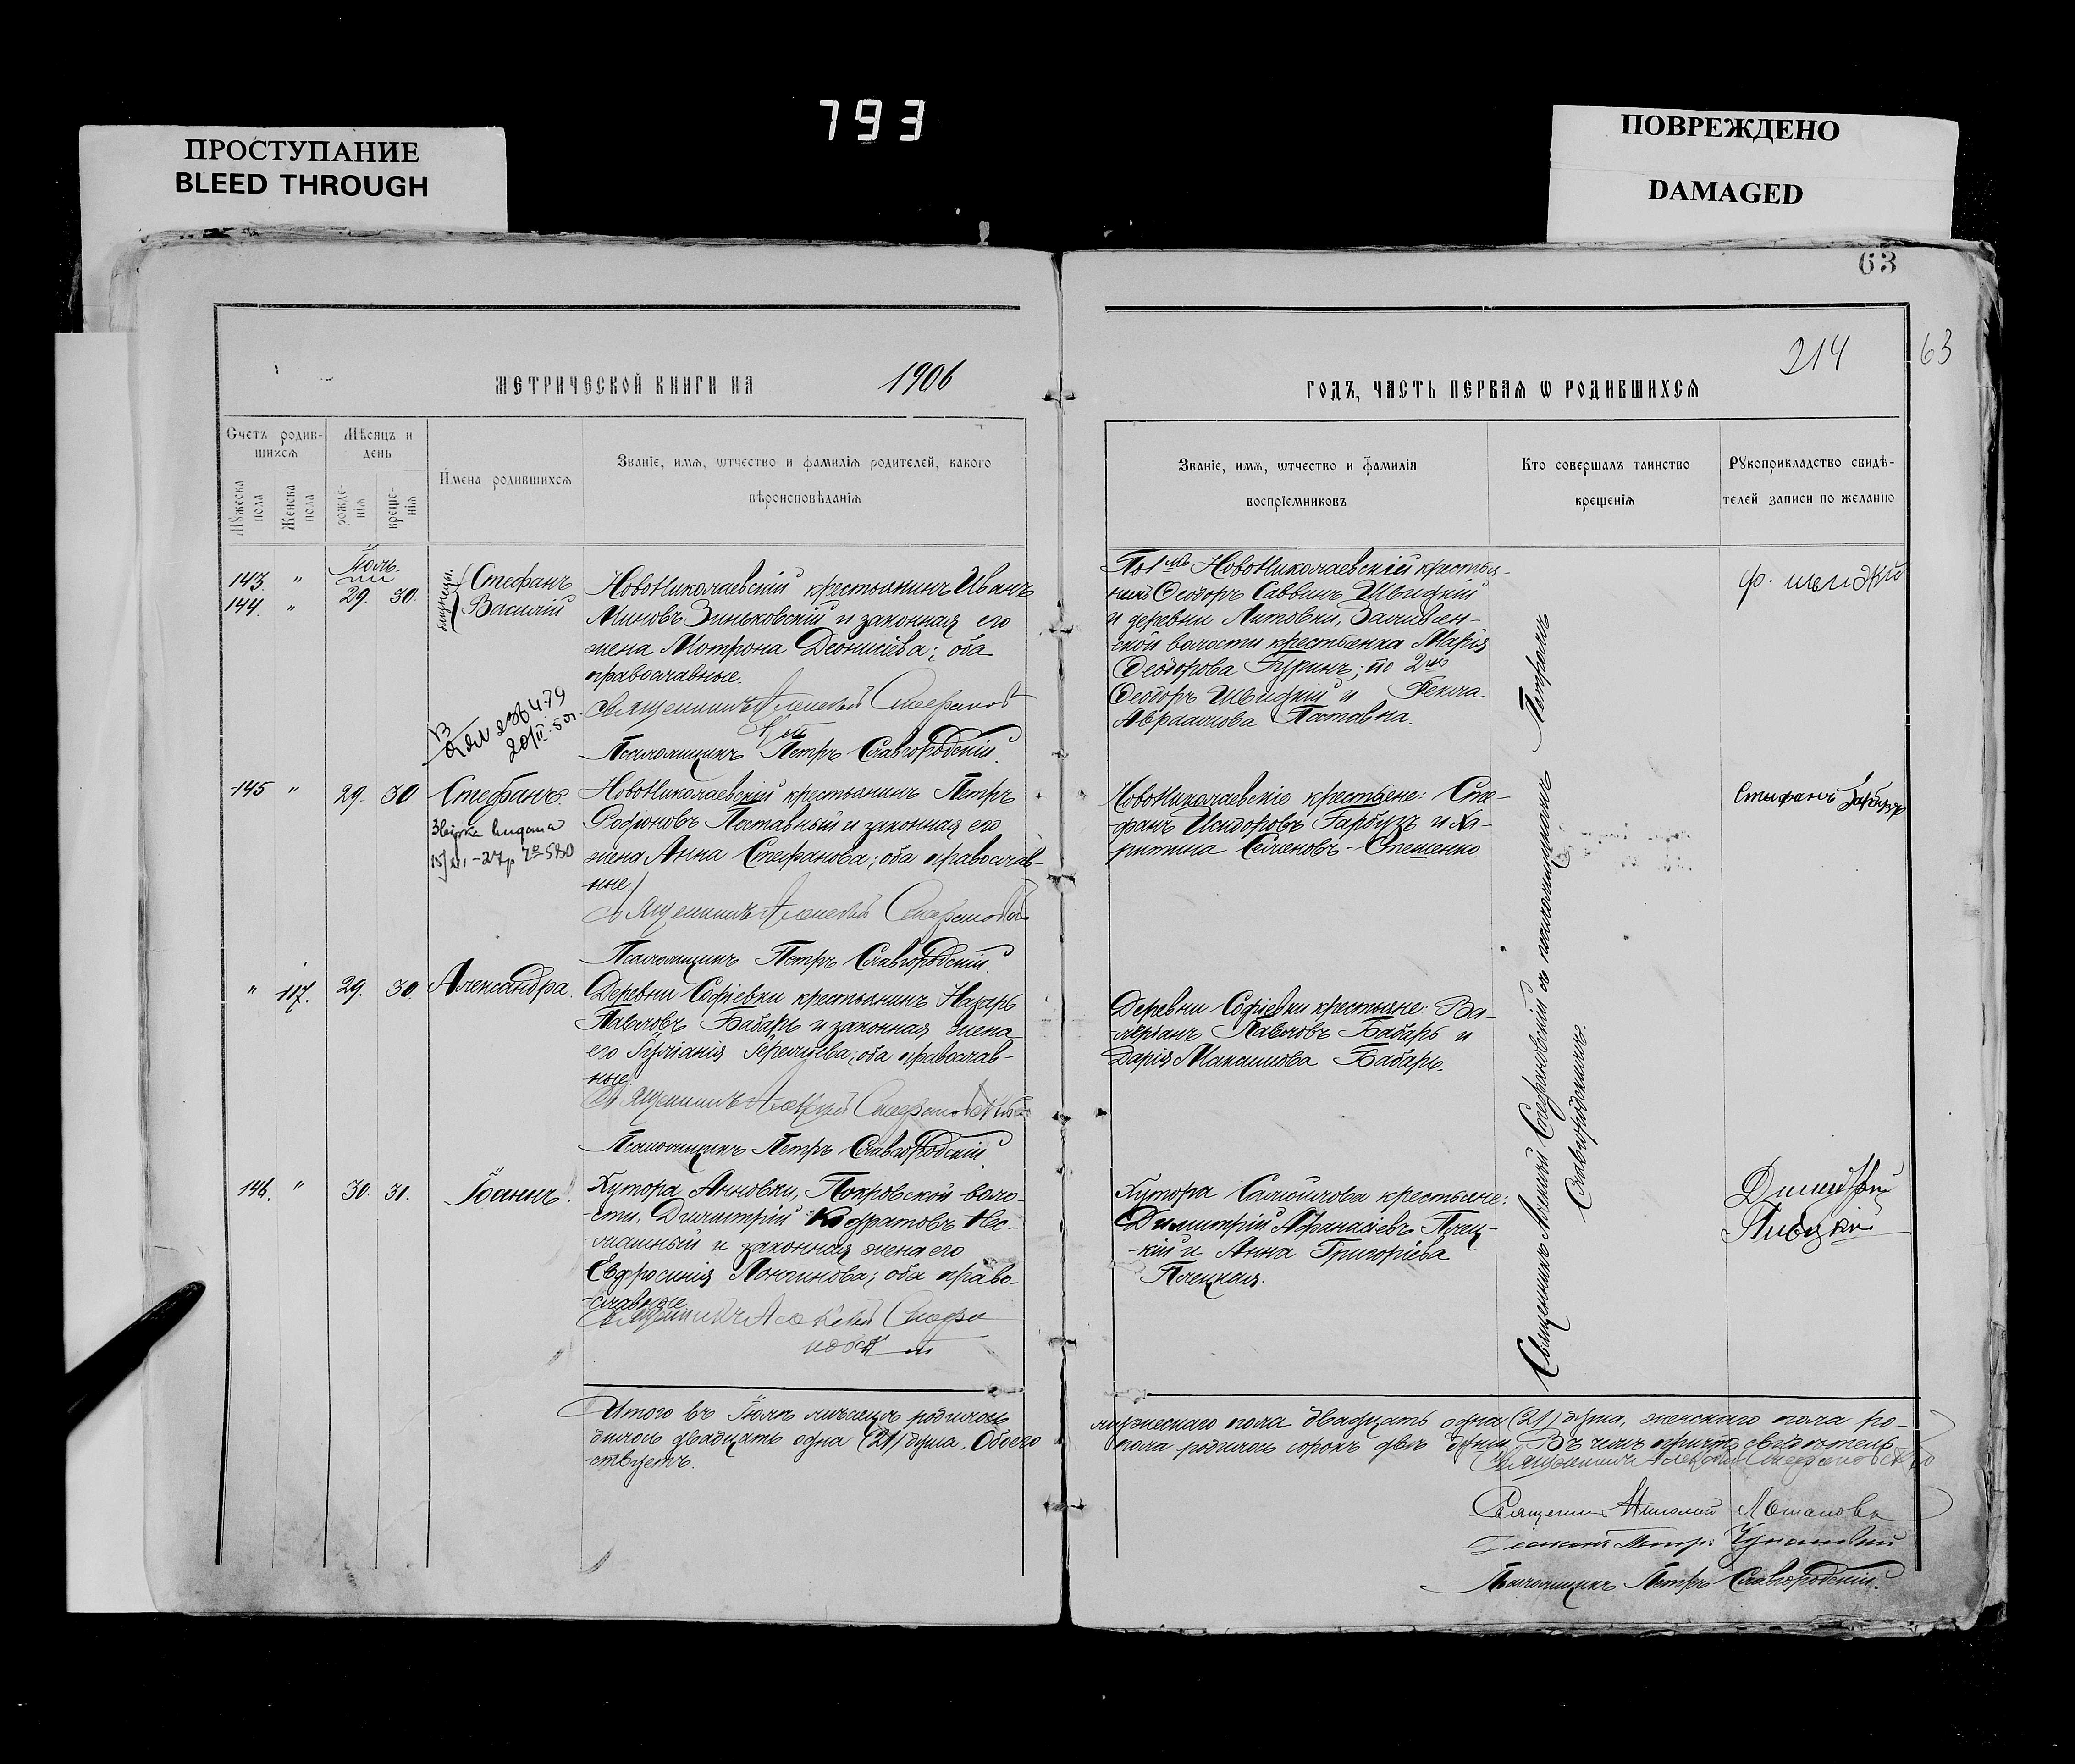 793
ПРОСТУПАНИЕ
BLEED THROUGH
ПОВРЕЖДЕНО
DAMAGED
63
214
63
МЕТРИЧЕСКОЙ КНИГИ НА 1906
ГОДЪ, ЧАСТЬ ПЕРВАЯ Ѡ РОДИВШИХСЯ
Счетъ родив-
шихся
Мѣсяцъ и
день
Мужеска
пола
Женска
пола
рожде-
нія
креще-
нія
Имена родившихся
Званіе, имя, ѡтчество и фамилія родителей, какого
вѣроисповѣданія
Званіе, имя, ѡтчество и фамилія
воспріемниковъ
Кто совершалъ таинство
крещенія
Рукоприкладство свидѣ-
телей записи по желанію
Іюль
143. " 29. 30.
144. "
близнецы.
Стефанъ
Василій
НовоНиколаевскій крестьянинъ Иванъ
Миновъ Зиньковскій и законная его
жена Мотрона Деонисіева; оба
православные.
Священникъ Алексѣй Стефановскій
Псаломщикъ Петръ Славгородскій.
По 1мъ НовоНиколаевскій крестья-
нинъ Ѳеодоръ Саввинъ Швидкій
и деревни Литовки,
ской волости крестьянка Марія
Ѳеодорова; по 2мъ
Ѳеодоръ Швидкій и Ѳекла
Авраамова Поставна.
145 " 29. 30 Стефанъ.
НовоНиколаевскій крестьянинъ Петръ
Родіоновъ Поставный и законная его
жена Анна Стефанова; оба православ-
ные.
Священникъ Алексѣй Стефановскій
Псаломщикъ Петръ Славгородскій.
НовоНиколаевскіе крестьяне: Сте-
фанъ Исидоровъ Гарбузъ и Ха-
ритина Семеновъ-Стешенко.
Стифанъ Гарбузъ
" 117. 29. 30. Александра.
Деревни Софіевки крестьянинъ Назаръ
Павловъ Бабарь и законная жена
его Іуліанія Іереміева; оба православ-
ные.
Священникъ Алексѣй Стефановскій
Псаломщикъ Петръ Славгородскій.
Деревни Софіевки крестьяне: Ва-
леріанъ Павловъ Бабарь и
Дарія Максимова Бабарь.
146. " 30. 31. Іоаннъ.
Хутора Анновки, Покровской воло-
сти, Димитрій Кодратовъ Нес-
машный и законная жена его
Евфросинія Лонгинова; оба право-
славные.
Священникъ Алексѣй Стефа
новскій
Хутора Самойлова крестьяне:
Димитрій Аѳанасіевъ Плец-
кій и Анна Григоріева
Плецкая.
Священникъ Алексѣй Стефановскій съ псаломщикомъ Петромъ
Славгородскимъ.
Итого въ Іюлѣ мѣсяцѣ родилось мужескаго пола двадцать одна (21) душа, женскаго пола ро-
дилось двадцать одна (21) душа. Обоего пола родилось сорокъ двѣ души. Въ чемъ причтъ свидѣтель-
ствуетъ.
Священникъ Алексѣй Стефановскій
Священникъ Николай
Псаломщикъ Петръ Славгородскій.